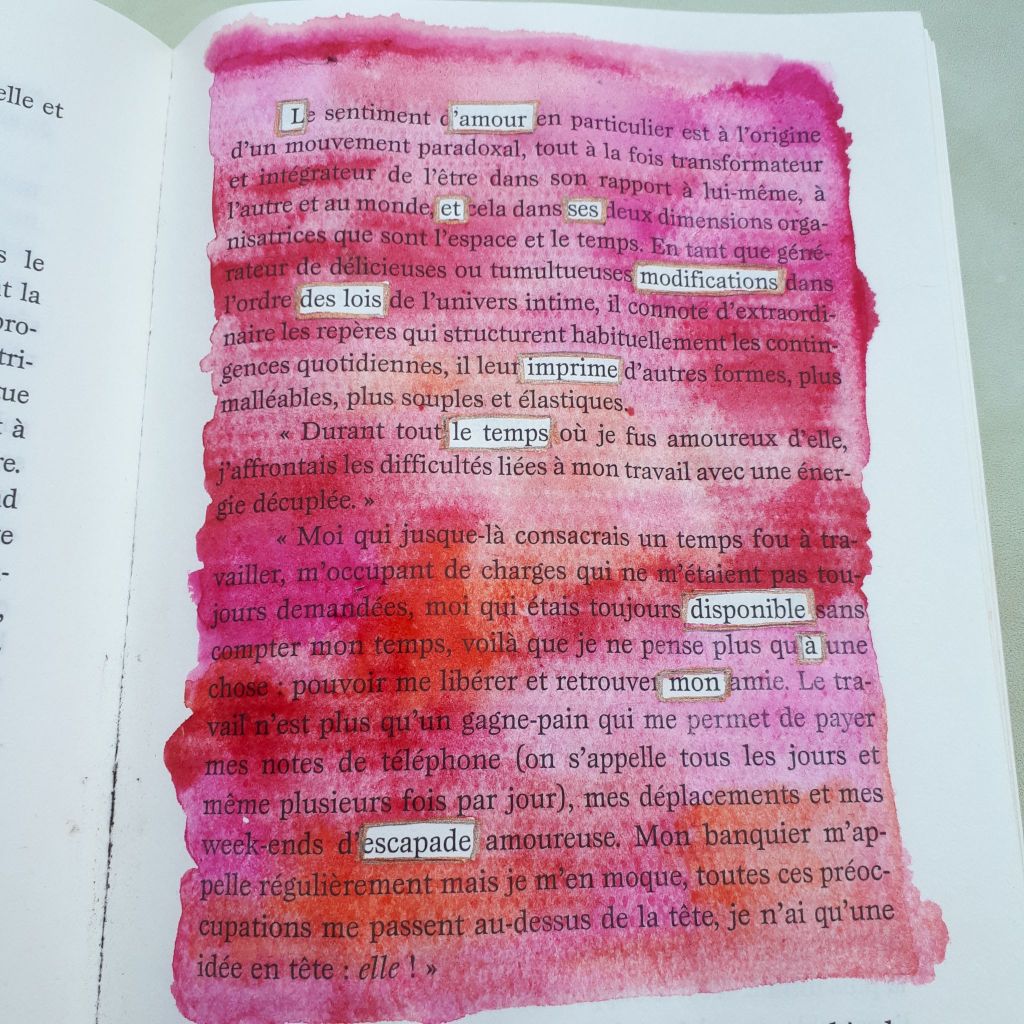 elle et
s le
t la
pro-
tri-
que
t à
re.
nd
ve
Le sentiment d'amour en particulier est à l'origine
d'un mouvement paradoxal, tout à la fois transformateur
et intégrateur de l'être dans son rapport à lui-même, à
l'autre et au monde, et cela dans ses deux dimensions orga-
nisatrices que sont l'espace et le temps. En tant que géné-
rateur de délicieuses ou tumultueuses modifications dans
l'ordre des lois de l'univers intime, il connote d'extraordi-
naire les repères qui structurent habituellement les contin-
gences quotidiennes, il leur imprime d'autres formes, plus
malléables, plus souples et élastiques.
« Durant tout le temps où je fus amoureux d'elle,
j'affrontais les difficultés liées à mon travail avec une éner-
gie décuplée. »
« Moi qui jusque-là consacrais un temps fou à tra-
vailler, m'occupant de charges qui ne m'étaient pas tou-
jours demandées, moi qui étais toujours disponible sans
compter mon temps, voilà que je ne pense plus qu'à une
chose : pouvoir me libérer et retrouver mon amie. Le tra-
vail n'est plus qu'un gagne-pain qui me permet de payer
mes notes de téléphone (on s'appelle tous les jours et
même plusieurs fois par jour), mes déplacements et mes
week-ends d'escapade amoureuse. Mon banquier m'ap-
pelle régulièrement mais je m'en moque, toutes ces préoc-
cupations me passent au-dessus de la tête, je n'ai qu'une
idée en tête : elle ! »